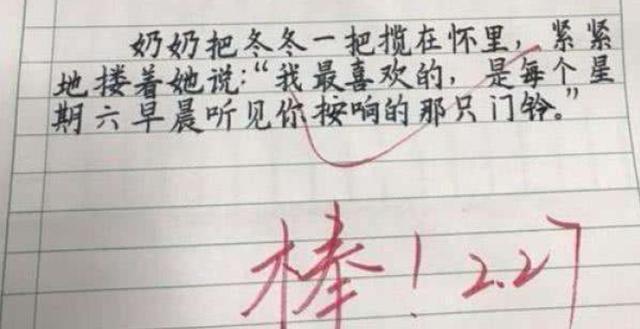 奶奶把冬冬一把揽在怀里，紧紧
地搂着她说：“我最喜欢的，是每个星
期六早晨听见你按响的那只门铃。”
棒！2.27